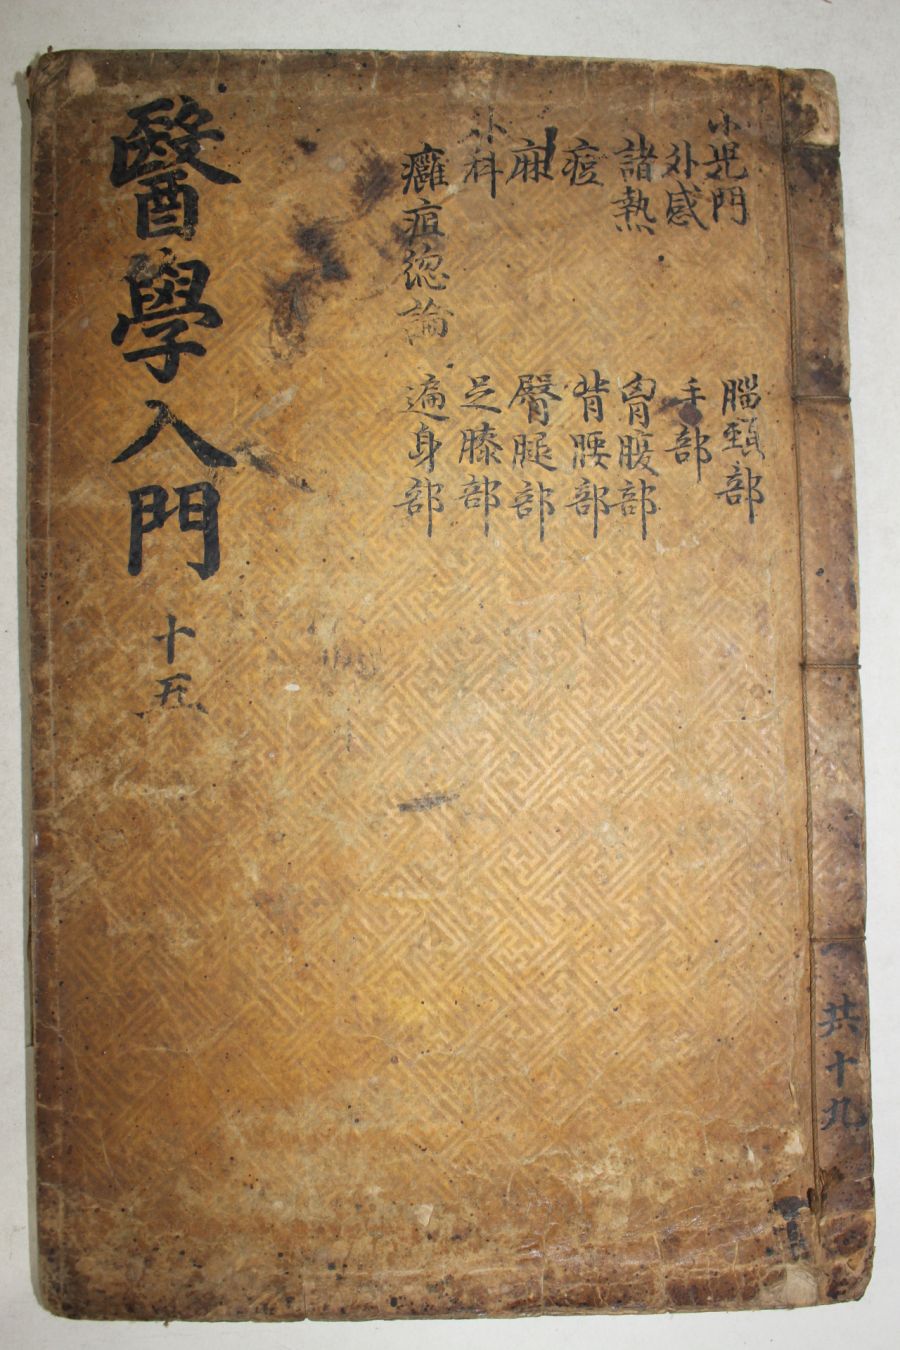 小児門
外感
諸熱
痘
麻
外科
癰疽總論
腦頸部
手部
胷腹部
背腰部
臀腿部
足膝部
遍身部
醫學入門
十五
共十九